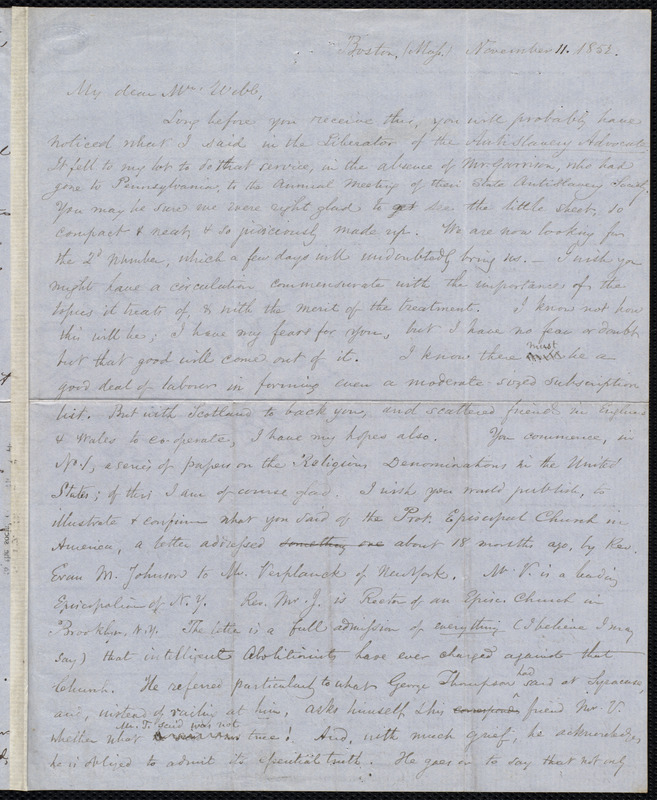 Boston, (Mass.) November 11. 1852.
My dear Mr. Webb,
Long before you receive this, you will probably have
noticed what I said in the Liberator of the Antislavery Advocate.
It fell to my lot to do that service, in the absence of Mr. Garrison, who had
gone to Pennsylvania, to the Annual Meeting of their State Antislavery Socy.
You may be sure we were right glad to get see the little sheet, so
compact & neat, & so judiciously made up. We are now looking for
the 2d Number, which a few days will undoubtedly bring us. – I wish you
might have a circulation commensurate with the importance of the
topics it treats of, & with the merit of the treatment. I know not how
this will be; I have my fears for you, but I have no fear or doubt
but that good will come out of it. I know there must be a
good deal of labour in forming even a moderate sized subscription
list. But with Scotland to back you, and scattered friends in England
& Wales to co-operate, I have my hopes also. You commence, in
No. 1, a series of papers on the Religious Denominations in the United
States; of this I am of course glad. I wish you would publish, to
illustrate & confirm what you said of the Prot. Episcopal Church in
America, a letter addressed something one about 18 months ago, by Rev.
Evan M. Johnson to Mr. Verplanck of New York. Mr. V. is a leading
Episcopalian of N.Y. Rev. Mr. J. is Rector of an Episc. Church in
Brooklyn, N.Y. The letter is a full admission of everything (I believe I may
say) that intelligent Abolitionists have ever charged against that
Church. He referred particularly to what George Thompson had said at Syracuse,
and, instead of railing at him, asks himself, & his friend Mr. V.
whether what Mr. T. said was not true! And, with much grief, he acknowledges
he is obliged to admit its essential truth. He goes on to say that not only